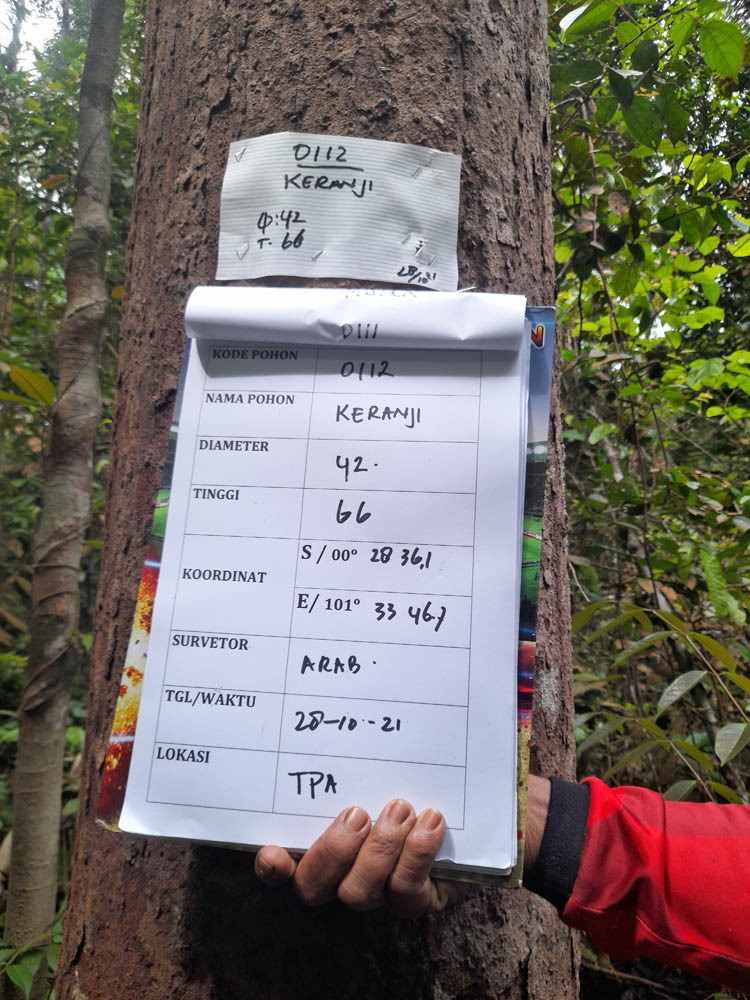 0112
KERANJI
Φ: 42
T. 66
28/10.21
0111
KODE POHON 0112
NAMA POHON KERANJI
DIAMETER 42.
TINGGI 66
KOORDINAT S / 00° 28 36,1
E/ 101° 33 46.7
SURVETOR ARAB.
TGL/WAKTU 28-10-21
LOKASI TPA